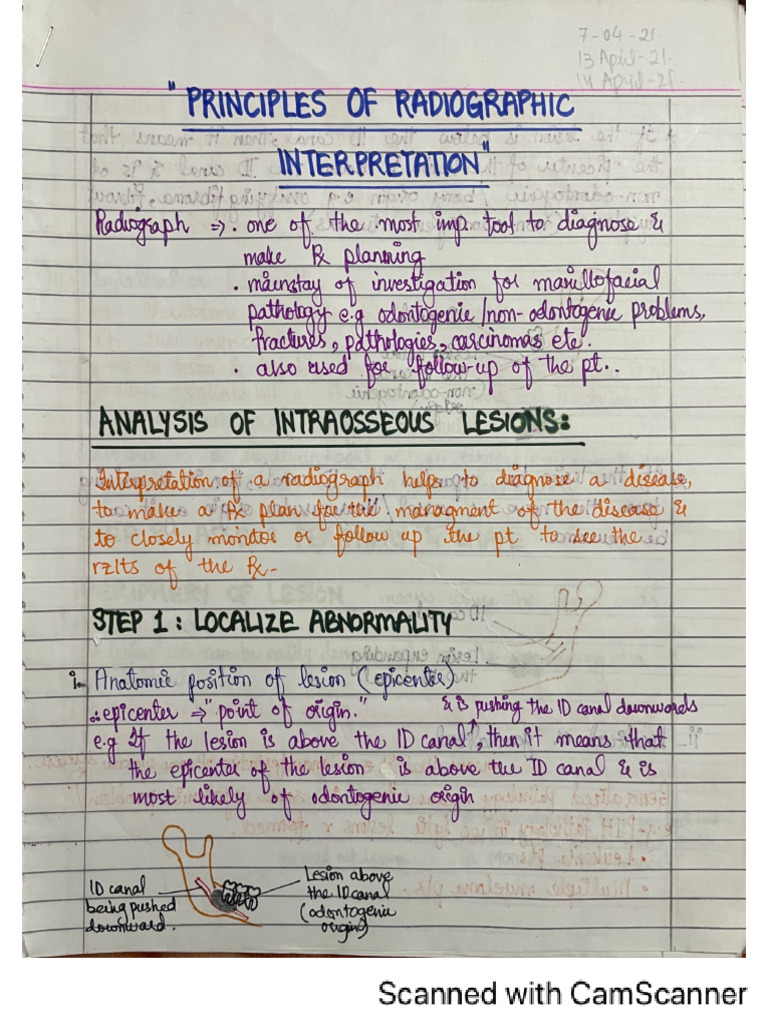 7-04-21.
13 April-21.
14 April-21.
"PRINCIPLES OF RADIOGRAPHIC
INTERPRETATION"
Radiograph ⇒ • one of the most imp. tool to diagnose &
make Rx planning
• mainstay of investigation for maxillofacial
pathology e.g odontogenic/non-odontogenic problems,
fractures, pathologies, carcinomas etc.
• also used for follow-up of the pt..
ANALYSIS OF INTRAOSSEOUS LESIONS:
Interpretation of a radiograph helps to diagnose a disease,
to make a Rx plan for the managment of the disease &
to closely monitor or follow up the pt to see the
rzlts of the Rx-
STEP 1: LOCALIZE ABNORMALITY
i- Anatomic position of lesion (epicenter)
∴epicenter ⇒ "point of origin." & is pushing the ID canal downwards
e.g If the lesion is above the ID canal, then it means that
the epicenter of the lesion is above the ID canal & is
most likely of odontogenic origin
ID canal
being pushed
downward.
Lesion above
the ID canal
(odontogenic
origin)
Scanned with CamScanner